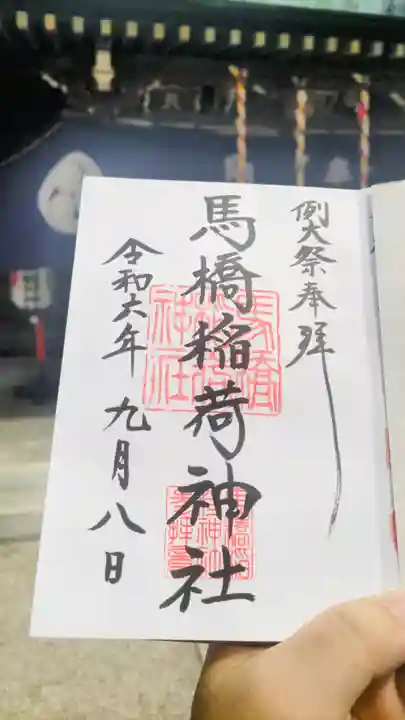 例大祭奉拜
馬橋稲荷神社
令和六年 九月八日
馬橋
稲荷
神社